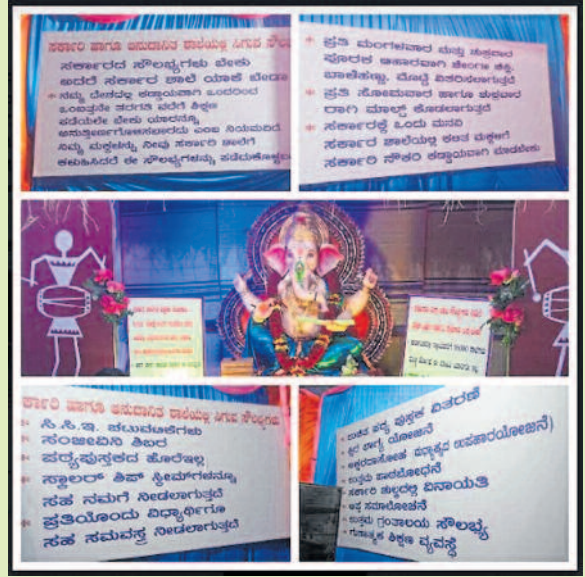 ಸರ್ಕಾರಿ ಹಾಗೂ ಅನುದಾನಿತ ಶಾಲೆಯಲ್ಲಿ ಸಿಗುವ ಸೌಲ
ಸರ್ಕಾರದ ಸೌಲಭ್ಯಗಳು ಬೇಕು
ಆದರೆ ಸರ್ಕಾರ ಶಾಲೆ ಯಾಕೆ ಬೇಡಾ
ನಮ್ಮ ದೇಶದಲ್ಲಿ ಕಡ್ಡಾಯವಾಗಿ ಒಂದರಿಂದ
ಒಂಬತ್ತನೇ ತರಗತಿ ವರೆಗೆ ಶಿಕ್ಷಣ
ಪಡೆಯಲೇ ಬೇಕು ಯಾರನ್ನೂ
ಅನುತ್ತೀರ್ಣಗೊಳಿಸಬಾರದು ಎಂಬ ನಿಯಮವಿದೆ
ನಿಮ್ಮ ಮಕ್ಕಳನ್ನು ನೀವು ಸರ್ಕಾರಿ ಶಾಲೆಗೆ
ಕಳುಹಿಸಿದರೆ ಈ ಸೌಲಭ್ಯಗಳನ್ನು ಪಡೆದುಕೊಳ್ಳಬ
ಪ್ರತಿ ಮಂಗಳವಾರ ಮತ್ತು ಶುಕ್ರವಾರ
ಪೂರಕ ಆಹಾರವಾಗಿ ಶೇಂಗಾ ಚಿಕ್ಕಿ,
ಬಾಳೆಹಣ್ಣು, ಮೊಟ್ಟೆ ವಿತರಿಸಲಾಗುತ್ತದೆ
ಪ್ರತಿ ಸೋಮವಾರ ಹಾಗೂ ಶುಕ್ರವಾರ
ರಾಗಿ ಮಾಲ್ಟ್ ಕೊಡಲಾಗುತ್ತದೆ
ಸರ್ಕಾರಕ್ಕೆ ಒಂದು ಮನವಿ
ಸರ್ಕಾರ ಶಾಲೆಯಲ್ಲಿ ಕಲಿತ ಮಕ್ಕಳಿಗೆ
ಸರ್ಕಾರಿ ನೌಕರಿ ಕಡ್ಡಾಯವಾಗಿ ಮಾಡಬೇಕು
ರ್ಕಾರಿ ಹಾಗೂ ಅನುದಾನಿತ ಶಾಲೆಯಲ್ಲಿ ಸಿಗುವ ಸೌಲಭ್ಯಗಳು
ಸಿ.ಸಿ.ಇ. ಚಟುವಟಿಕೆಗಳು
ಸಂಜೀವಿನಿ ಶಿಬಿರ
ಪಠ್ಯಪುಸ್ತಕದ ಹೊರೆಇಲ್ಲ
ಸ್ಕಾಲರ್ ಶಿಪ್ ಸ್ಕೀಮ್‌ಗಳನ್ನೂ
ಸಹ ನಮಗೆ ನೀಡಲಾಗುತ್ತದೆ
ಪ್ರತಿಯೊಂದು ವಿದ್ಯಾರ್ಥಿಗೂ
ಸಹ ಸಮವಸ್ತ್ರ ನೀಡಲಾಗುತ್ತದೆ
ಉಚಿತ ಪಠ್ಯ ಪುಸ್ತಕ ವಿತರಣೆ
ಕ್ಷೀರ ಭಾಗ್ಯ ಯೋಜನೆ
ಅಕ್ಷರದಾಸೋಹ (ಮಧ್ಯಾಹ್ನದ ಉಪಹಾರಯೋಜನೆ)
ಉತ್ತಮ ಪಾಠಬೋಧನೆ
ಸರ್ಕಾರಿ ಶುಲ್ಕದಲ್ಲಿ ವಿನಾಯತಿ
ಆಪ್ತ ಸಮಾಲೋಚನೆ
ಉತ್ತಮ ಗ್ರಂಥಾಲಯ ಸೌಲಭ್ಯ
ಗುಣಾತ್ಮಕ ಶಿಕ್ಷಣ ವ್ಯವಸ್ಥೆ